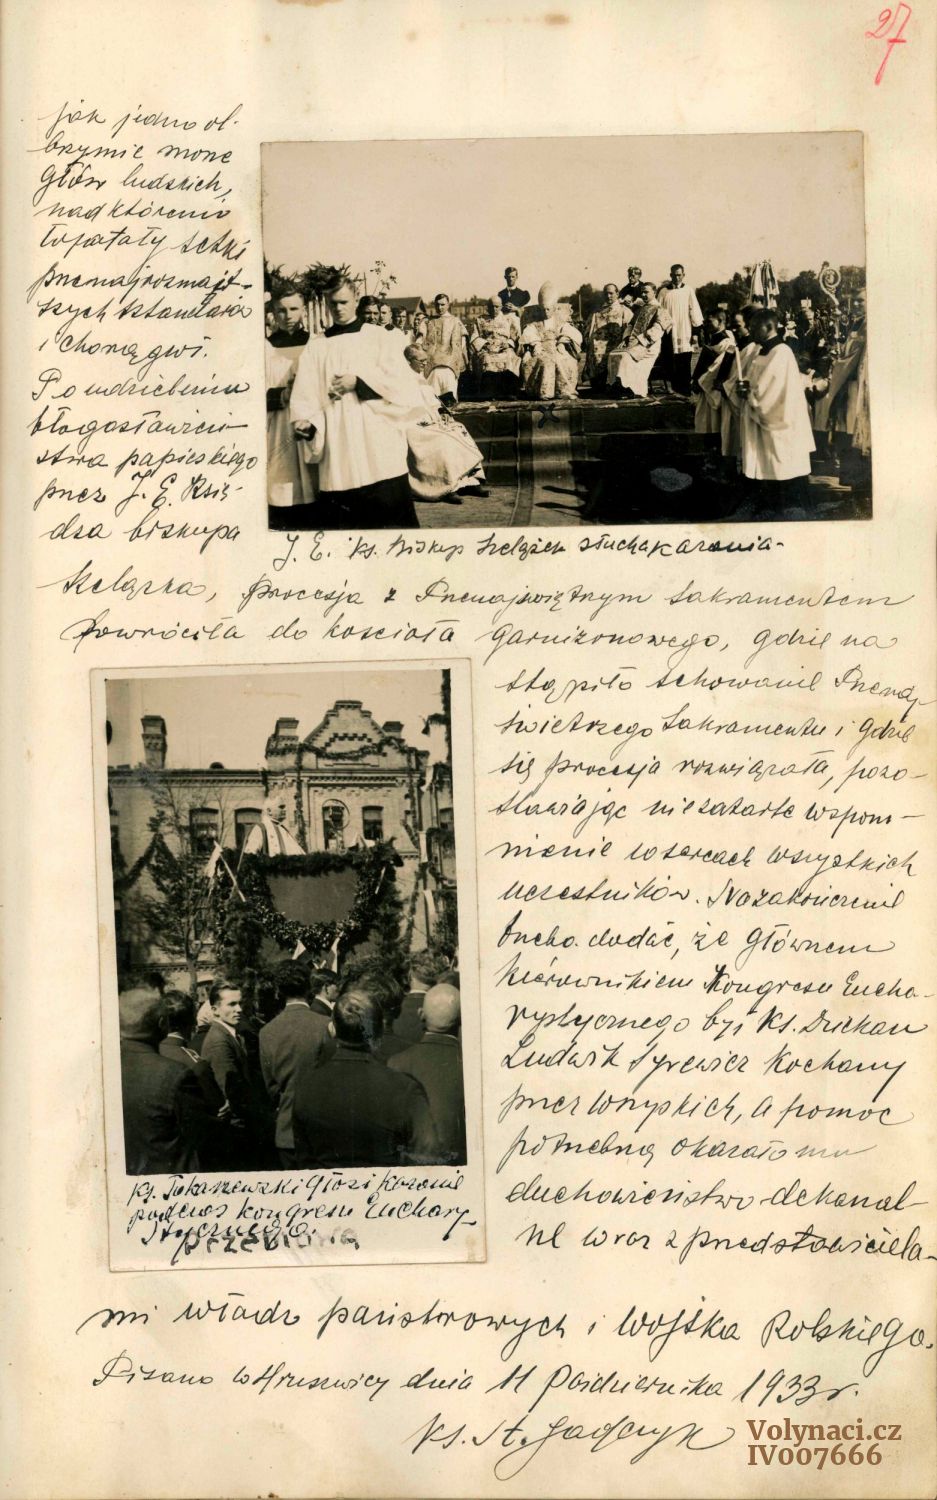 27
jak jedno ol-
brzymie morze
głów ludzkich,
nad któremi
łopatały setki
przenajrozmait-
szych sztandarów
i chorągwi.
Po udzieleniu
błogosławień-
stwa papieskiego
przez J. E. Księ-
dza biskupa
J. E. ks. Biskup Szelążek słucha kazania-
Szelążka, procesja z Przenajświętszym Sakramentem
powróciła do kościoła garnizonowego, gdzie na
stąpiło schowanie Przenaj-
świętszego Sakramentu i gdzie
się procesja rozwiązała, pozo-
stawiając niezatarte wspom-
nienie w sercach wszystkich
uczestników. Na zakończenie
trzeba dodać, że głównem
kierownikiem Kongresu Eucha-
rystycznego był ks. Dziekan
Ludwik Syrewicz kochany
przez wszystkich, a pomoc
potrzebną okazało mu
duchowieństwo dekanal-
ne wraz z przedstawiciela-
ks. Tukaszewski głosi kazanie
podczas kongresu Euchary-
stycznego.
mi władz państwowych i Wojska Polskiego.
Pisano w Hruszwicy dnia 11 Października 1933 r.
ks. St. Jadczyk
Volynaci.cz
IV007666